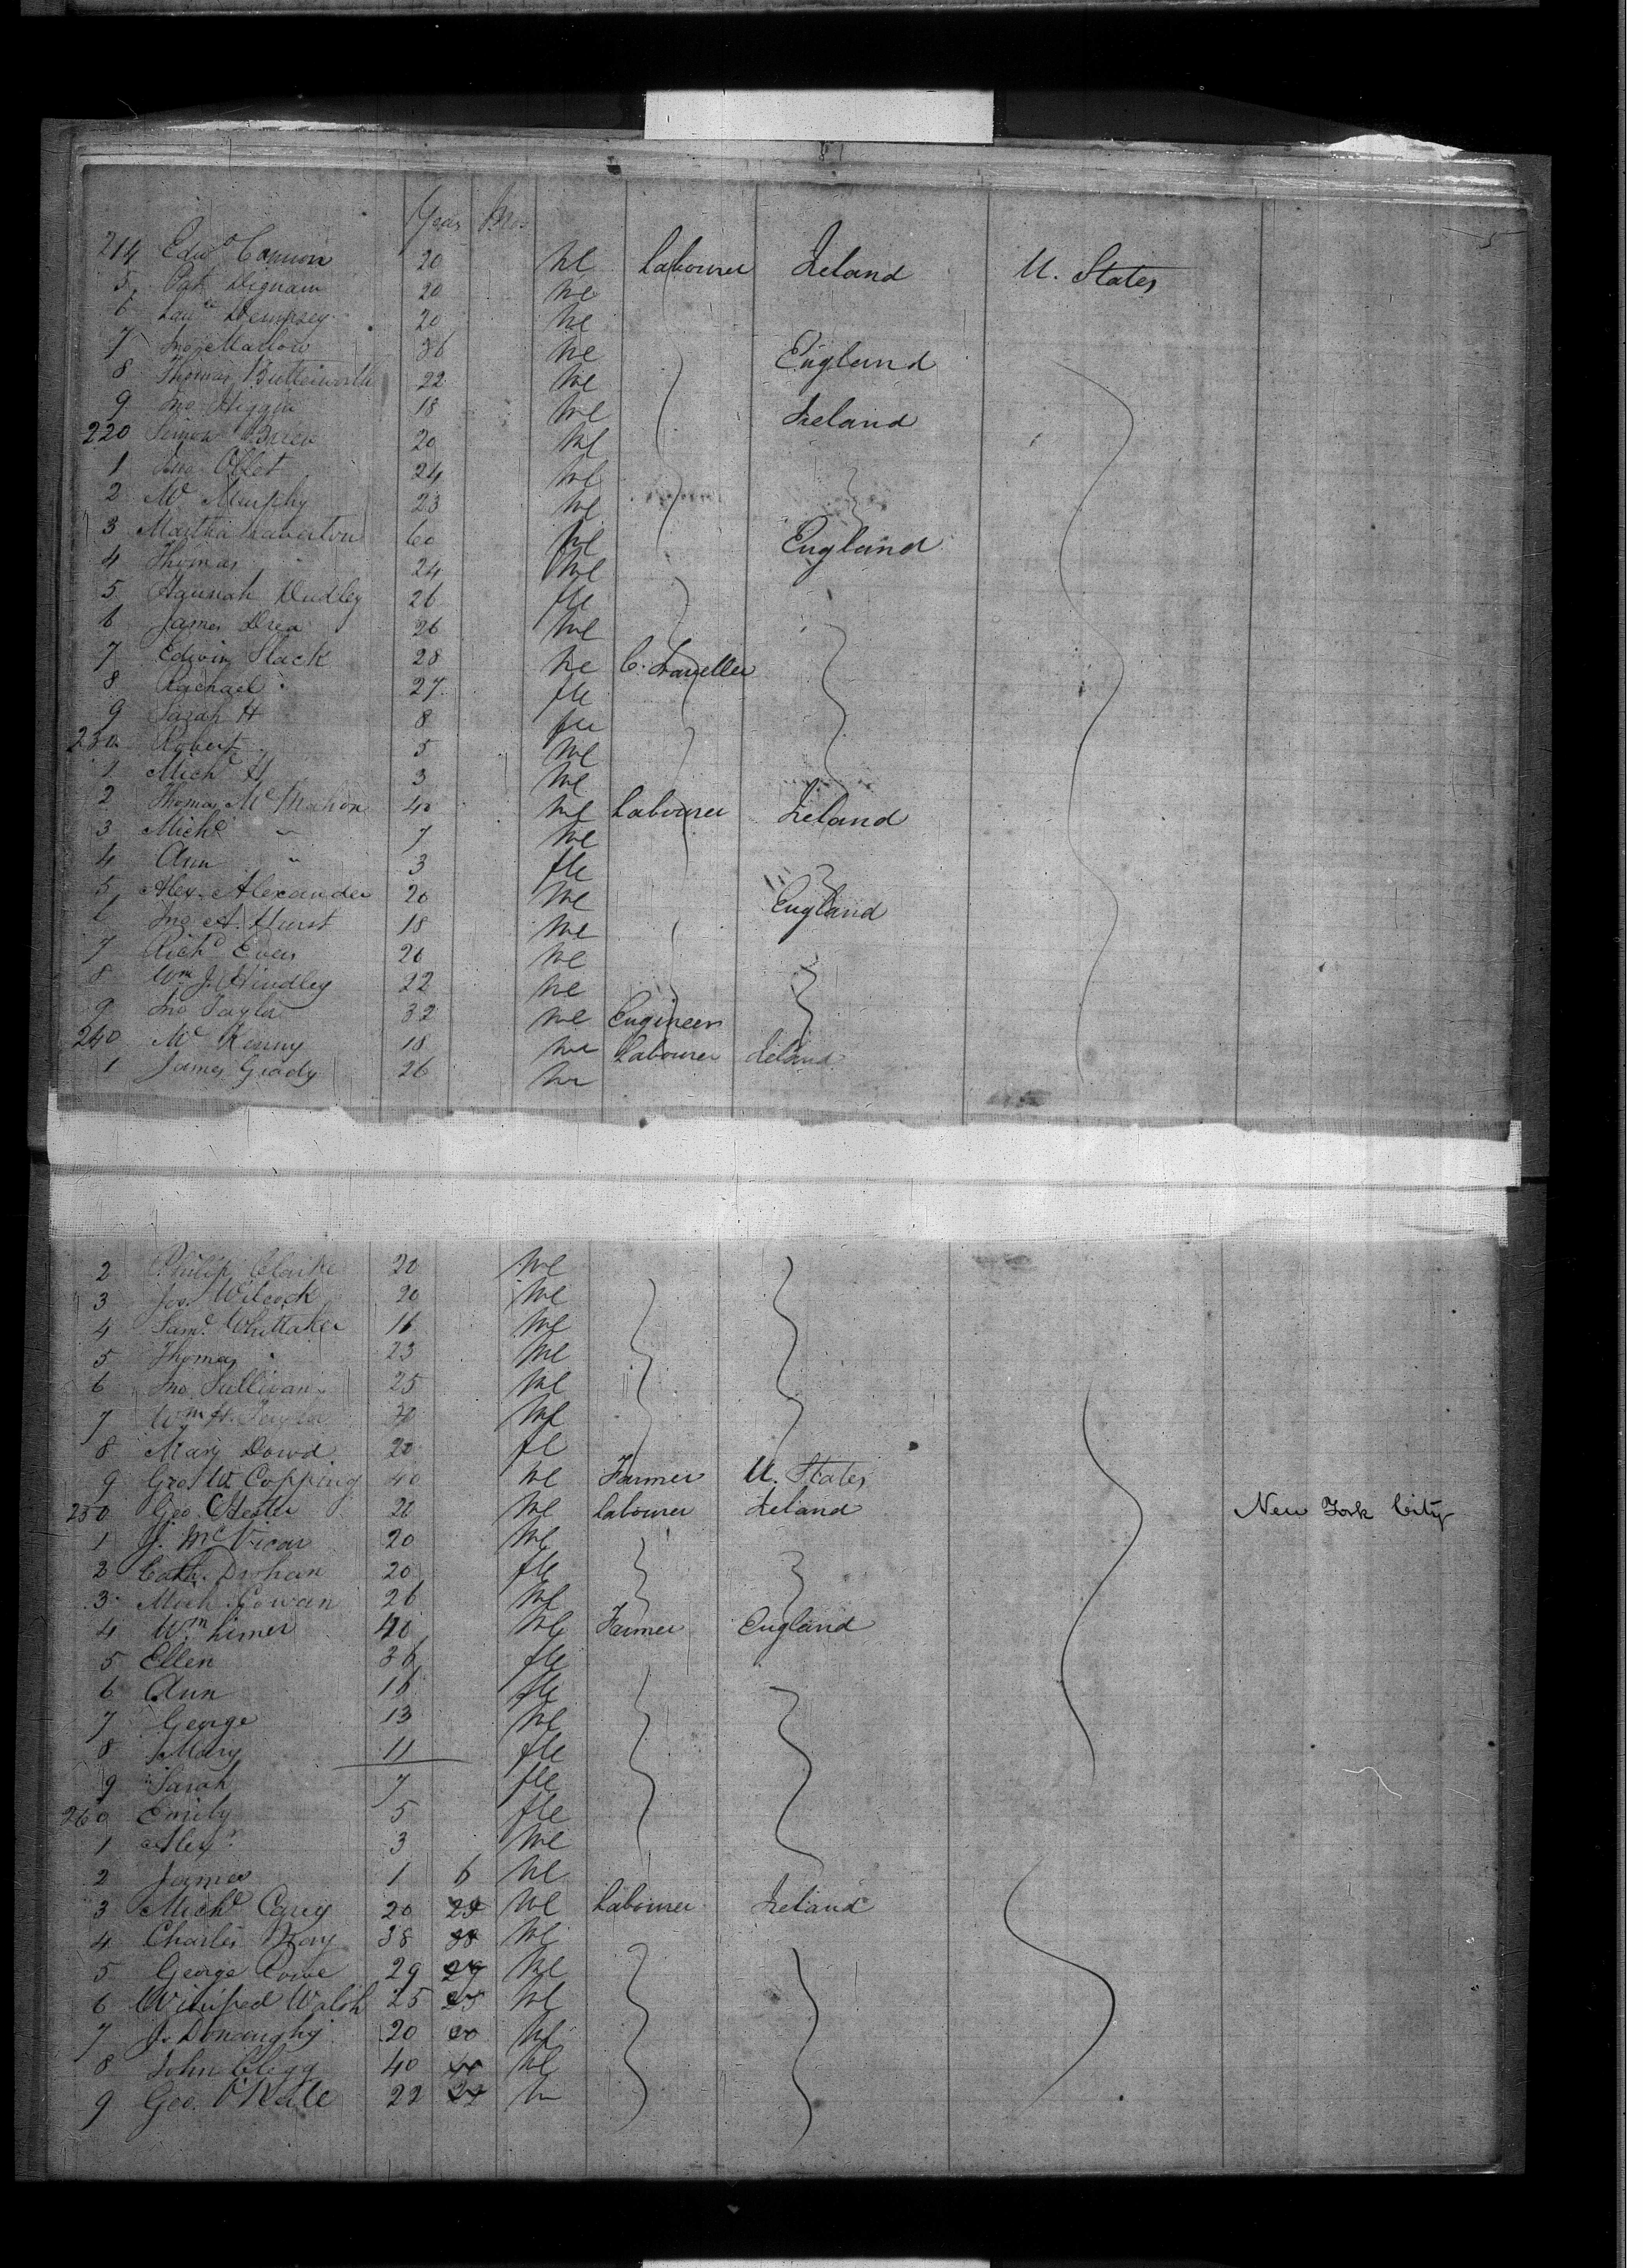 Years Mos
214 Edwd Cannon 20 Me Labourer Ireland U. States
5 Pat Dignam 20 Me
6 Lauce Dempsey 20 Me
7 Jno Mallow 36 Me England
8 Thomas Butterworth 22 Me
9 Jno Higgin 18 Me Ireland
220 Simon 20 Me
1 Jno 24 Me
2 Mc Murphy 23 Me
3 Martha 60 England
4 Thomas 24 Me
5 Hannah Dudley 26 fle
6 James Drea 26 Me
7 Edwin Slack 28 Me C. Traveller
8 Rachael " 27 fle
9 Sarah H 8 fle
230 Robert 5 Me
1 Michl H 3 Me
2 Thomas McMahon 40 Me Labourer Ireland
3 Michl " 7 Me
4 Ann " 3 fle
5 Alex. Alexander 20 Me England
6 Jno A. Hurst 18 Me
7 Richd Evers 20 Me
8 Wm J. Hindley 22 Me
9 Jno Taylor 32 Me Engineer
240 Mc Kenny 18 Me Labourer Ireland
1 James Grady 26 Me
2 Philip Clarke 20 Me
3 Jos. Wilcock 20 Me
4 Saml Whittaker 16 Me
5 Thomas " 23 Me
6 Jno Sullivan 25 Me
7 Wm H. Taylor 30 Me
8 Mary Dowd 20 fle
9 Geo W Copping 40 Me Farmer U. States
250 Geo. Hester 20 Me Labourer Ireland New York City
1 J. McVicar 20 Me
2 Cath. Drohan 20 fle
3 Mich. Cowan 26 Me
4 Wm Limer 40 Me Farmer England
5 Ellen 36 fle
6 Ann 16 fle
7 George 13 Me
8 Mary 11 fle
9 Sarah 7 fle
260 Emily 5 fle
1 Alexr 3 Me
2 James 1 6 Me
3 Michl Carey 20 Me Labourer Ireland
4 Charles 38 38 Me
5 George Cowe 29 29 Me
6 Winifred Walsh 25 25 Me
7 J. Donaughy 20 20 Me
8 John Clegg 40 Me
9 Geo. O'Neale 22 22